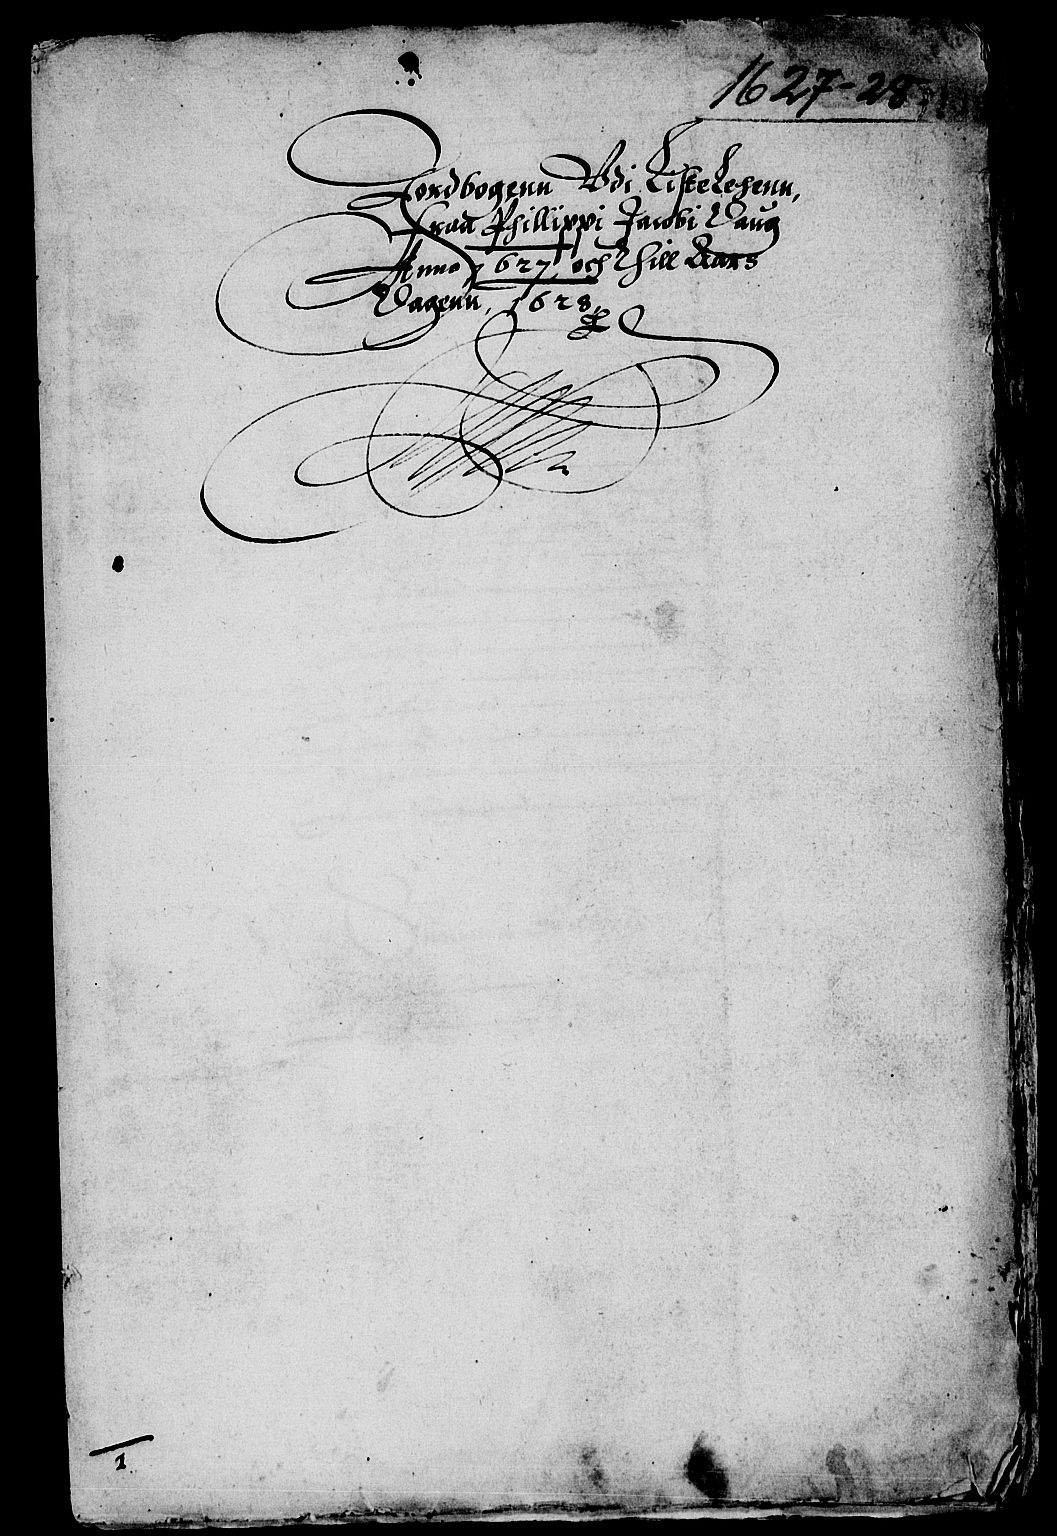 1627-28
Jordbogenn Vdi Liste Lehenn,
fraa Philippi Jacobi Daug
Anno 1627 och Thill Aars
Dagenn, 1628,
1